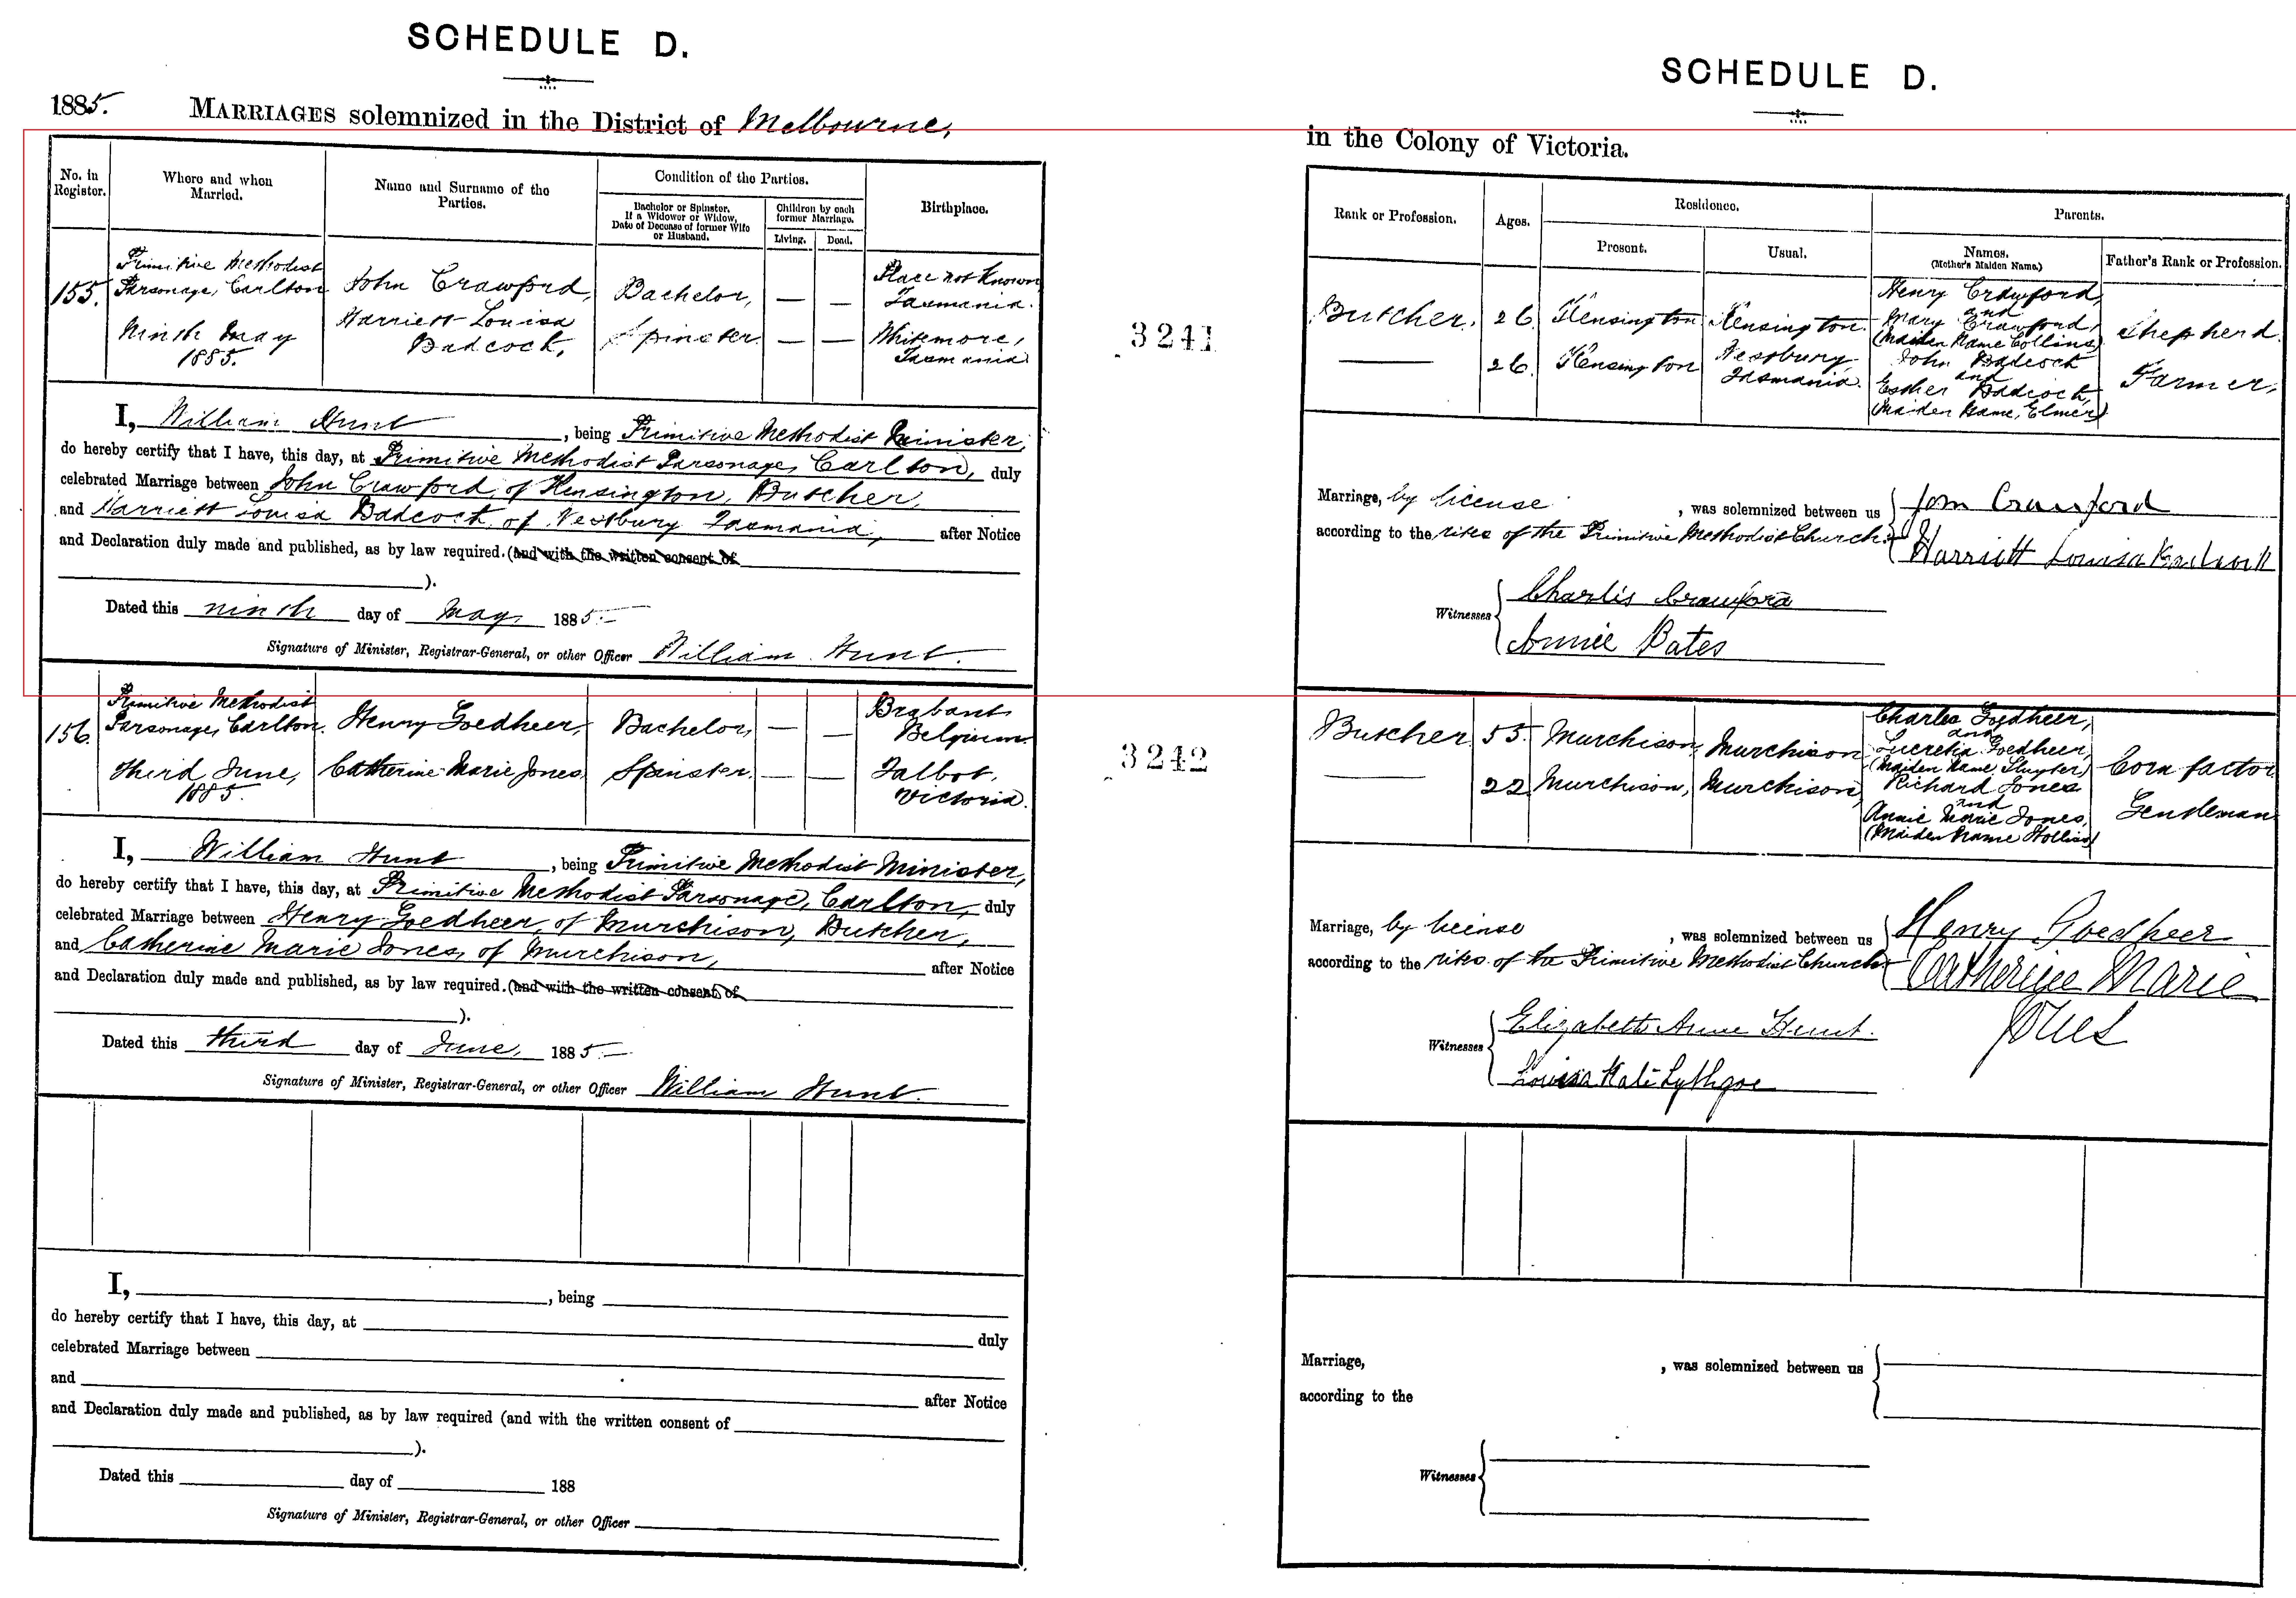 SCHEDULE D.
1885. MARRIAGES solemnized in the District of Melbourne,
No. in Register.
Where and when Married.
Name and Surname of the Parties.
Condition of the Parties.
Bachelor or Spinster. If a Widower or Widow, Date of Decease of former Wife or Husband.
Children by each former Marriage.
Living.
Dead.
Birthplace.
155.
Primitive Methodist
Parsonage, Carlton
Ninth May
1885.
John Crawford,
Harriett Louisa
Badcock,
Bachelor, — —
Spinster. — —
Place not known
Tasmania.
Whitemore,
Tasmania
I, William Hunt, being Primitive Methodist Minister,
do hereby certify that I have, this day, at Primitive Methodist Parsonage, Carlton, duly
celebrated Marriage between John Crawford, of Kensington, Butcher,
and Harriett Louisa Badcock, of Westbury Tasmania, after Notice
and Declaration duly made and published, as by law required. (and with the written consent of
).
Dated this ninth day of May, 1885.—
Signature of Minister, Registrar-General, or other Officer William Hunt.
156.
Primitive Methodist
Parsonage, Carlton.
Third June,
1885.
Henry Goedheer,
Catherine Marie Jones
Bachelor, — —
Spinster. — —
Brabant
Belgium.
Talbot,
Victoria.
I, William Hunt, being Primitive Methodist Minister,
do hereby certify that I have, this day, at Primitive Methodist Parsonage, Carlton, duly
celebrated Marriage between Henry Goedheer, of Murchison, Butcher,
and Catherine Marie Jones, of Murchison, after Notice
and Declaration duly made and published, as by law required. (and with the written consent of
).
Dated this third day of June, 1885.—
Signature of Minister, Registrar-General, or other Officer William Hunt.
I, , being
do hereby certify that I have, this day, at duly
celebrated Marriage between
and after Notice
and Declaration duly made and published, as by law required (and with the written consent of
).
Dated this day of 188
Signature of Minister, Registrar-General, or other Officer
3241
3242
SCHEDULE D.
in the Colony of Victoria.
Rank or Profession.
Ages.
Residence.
Present.
Usual.
Parents.
Names.
(Mother's Maiden Name.)
Father's Rank or Profession.
Butcher. 26. Kensington Kensington.
— 26. Kensington Westbury,
Tasmania.
Henry Crawford,
and
Mary Crawford,
(Maiden Name Collins)
John Badcock
and
Esther Badcock,
(Maiden Name, Elmer)
Shepherd.
Farmer,
Marriage, by license, was solemnized between us
according to the rites of the Primitive Methodist Church.
John Crawford
Harriett Louisa Badcock
Witnesses
Charles Crawford
Annie Bates
Butcher 55. Murchison, Murchison
— 22 Murchison, Murchison
Charles Goedheer,
and
Lucretia Goedheer,
(Maiden Name, Sluyter)
Richard Jones
and
Annie Marie Jones,
(Maiden Name Hollins)
Corn factor
Gentleman
Marriage, by license, was solemnized between us
according to the rites of the Primitive Methodist Church
Henry Goedheer
Catherine Marie
Jones
Witnesses
Elizabeth Anne Hunt.
Louisa Kate Lythgoe
Marriage, , was solemnized between us
according to the
Witnesses